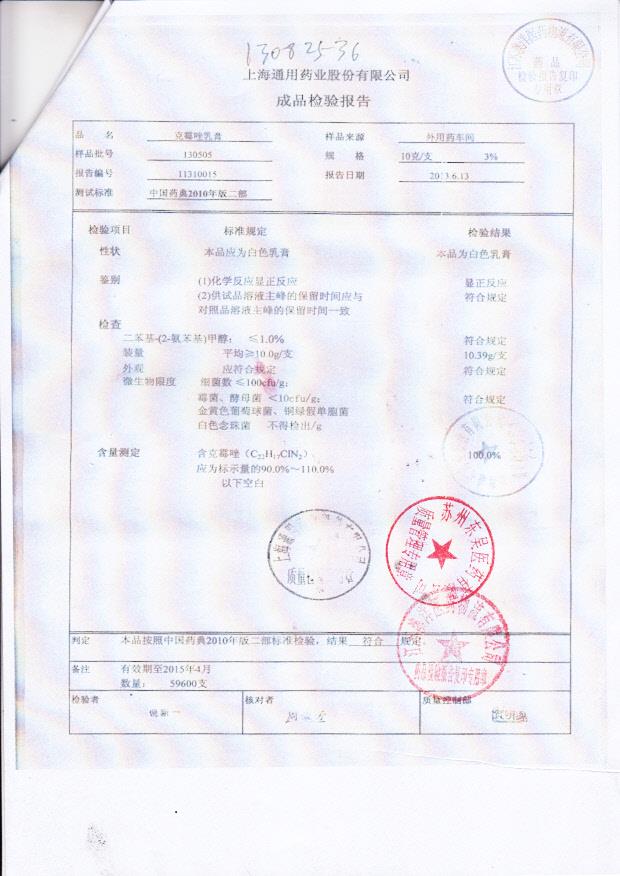 130825-36
上海通用药业股份有限公司
成品检验报告
药品
检验报告复印
专用章
品 名 克霉唑乳膏 样品来源 外用药车间
样品批号 130505 规 格 10克/支 3%
报告编号 11310015 报告日期 2013.6.13
测试标准 中国药典2010年版二部
检验项目 标准规定 检验结果
性状 本品应为白色乳膏 本品为白色乳膏
鉴别 (1)化学反应显正反应 显正反应
(2)供试品溶液主峰的保留时间应与 符合规定
对照品溶液主峰的保留时间一致
检查
二苯基-(2-氨苯基)甲醇: ≤1.0% 符合规定
装量 平均≥10.0g/支 10.39g/支
外观 应符合规定 符合规定
微生物限度 细菌数≤100cfu/g;
霉菌、酵母菌 <10cfu/g; 符合规定
金黄色葡萄球菌、铜绿假单胞菌
白色念珠菌 不得检出/g
含量测定 含克霉唑(C₂₂H₁₇ClN₂) 100.0%
应为标示量的90.0%~110.0%
以下空白
苏州东吴医药有
质量管理专用章
判定 本品按照中国药典2010年版二部标准检验,结果 符合 规定.
药品检验报告复印专用章
备注 有效期至2015年4月
数量: 59600支
检验者 核对者 质量控制部